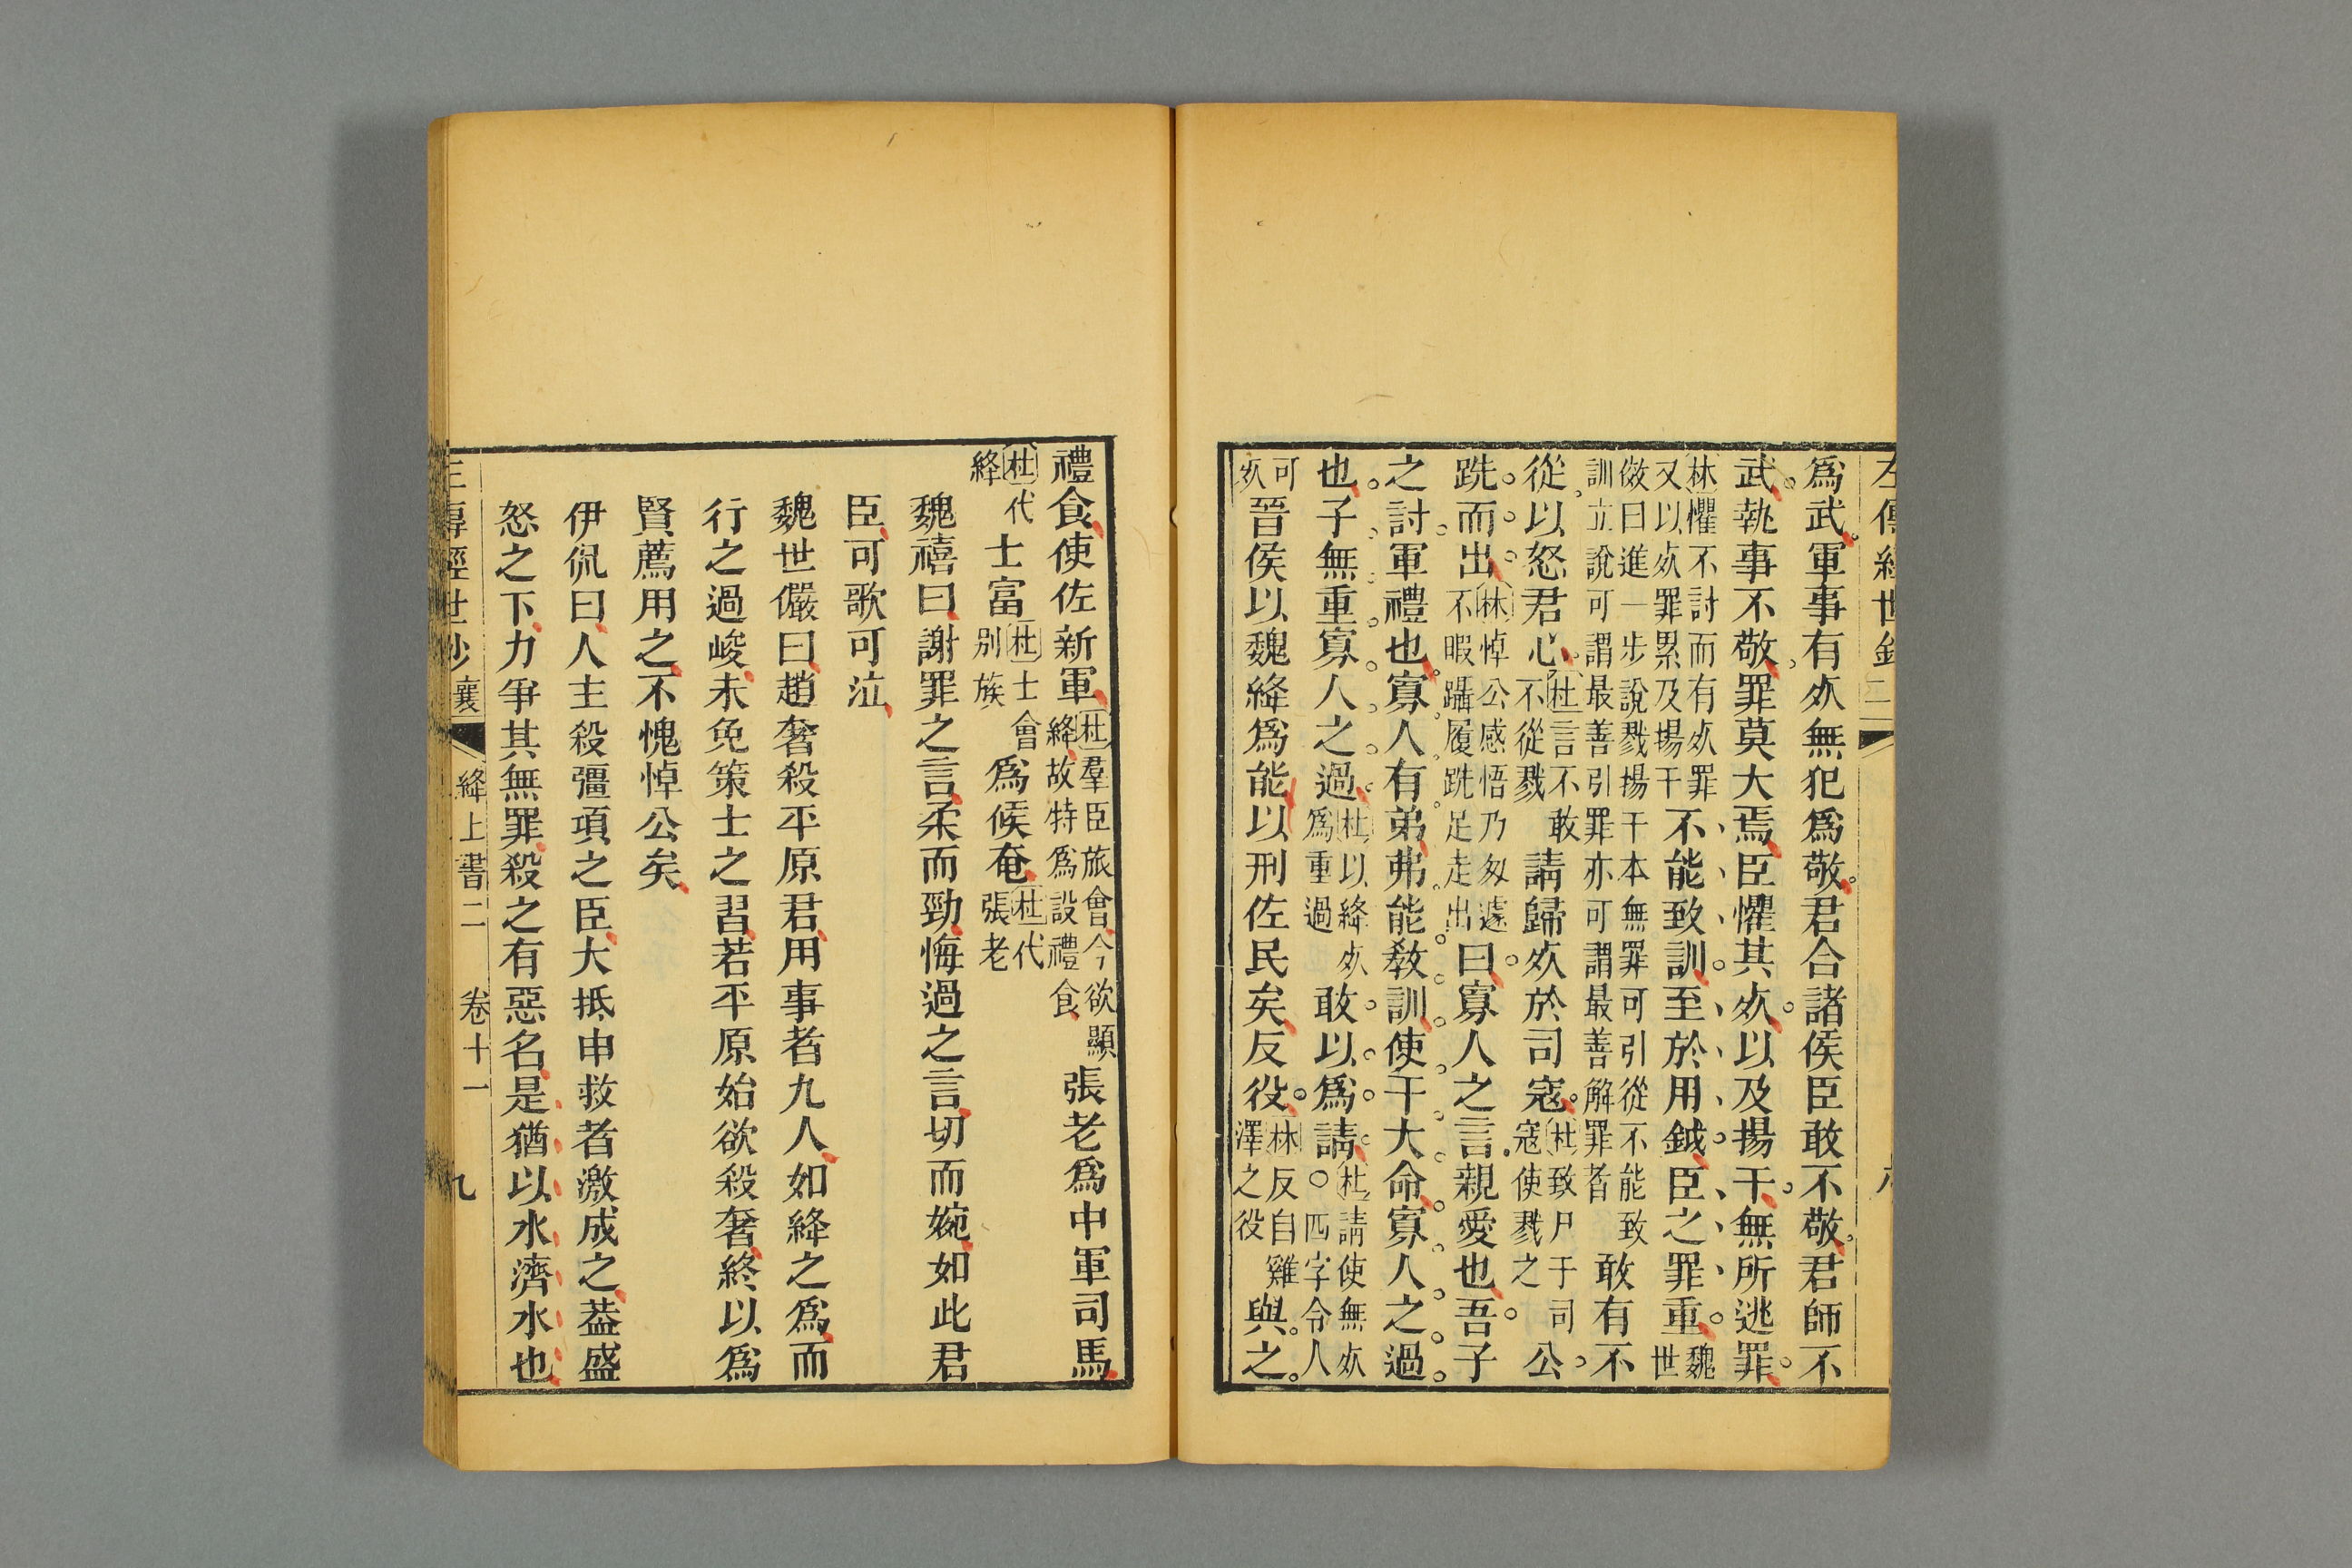 左傳經世鈔
爲武軍事有死無犯爲敬君合諸侯臣敢不敬君師不
武執事不敬罪莫大焉臣懼其死以及揚干無所逃罪
林懼不討而有死罪又以死罪累及揚干不能致訓至於用鉞臣之罪重魏世
傚曰進一步說戮揚干本無罪可引從不能致訓立說可謂最善引罪亦可謂最善解罪者敢有不
從以怒君心杜言不敢不從戮請歸死於司寇杜致尸于司寇使戮之公
跣而出林悼公感悟乃匆遽不暇躡履跣足走出曰寡人之言親愛也吾子
之討軍禮也寡人有弟弗能敎訓使干大命寡人之過
也子無重寡人之過杜以絳死爲重過敢以爲請○杜請使無死四字令人
可死晉侯以魏絳爲能以刑佐民矣反役林反自雞澤之役與之
禮食使佐新軍杜羣臣旅會今欲顯絳故特爲設禮食張老爲中軍司馬
杜代絳士富杜士會別族爲候奄杜代張老
魏禧曰謝罪之言柔而勁悔過之言切而婉如此君
臣可歌可泣
魏世儼曰趙奢殺平原君用事者九人如絳之爲而
行之過峻未免策士之習若平原始欲殺奢終以爲
賢薦用之不愧悼公矣
伊侃曰人主殺彊項之臣大抵申救者激成之葢盛
怒之下力爭其無罪殺之有惡名是猶以水濟水也
左傳經世鈔 襄 絳上書二 卷十一 九